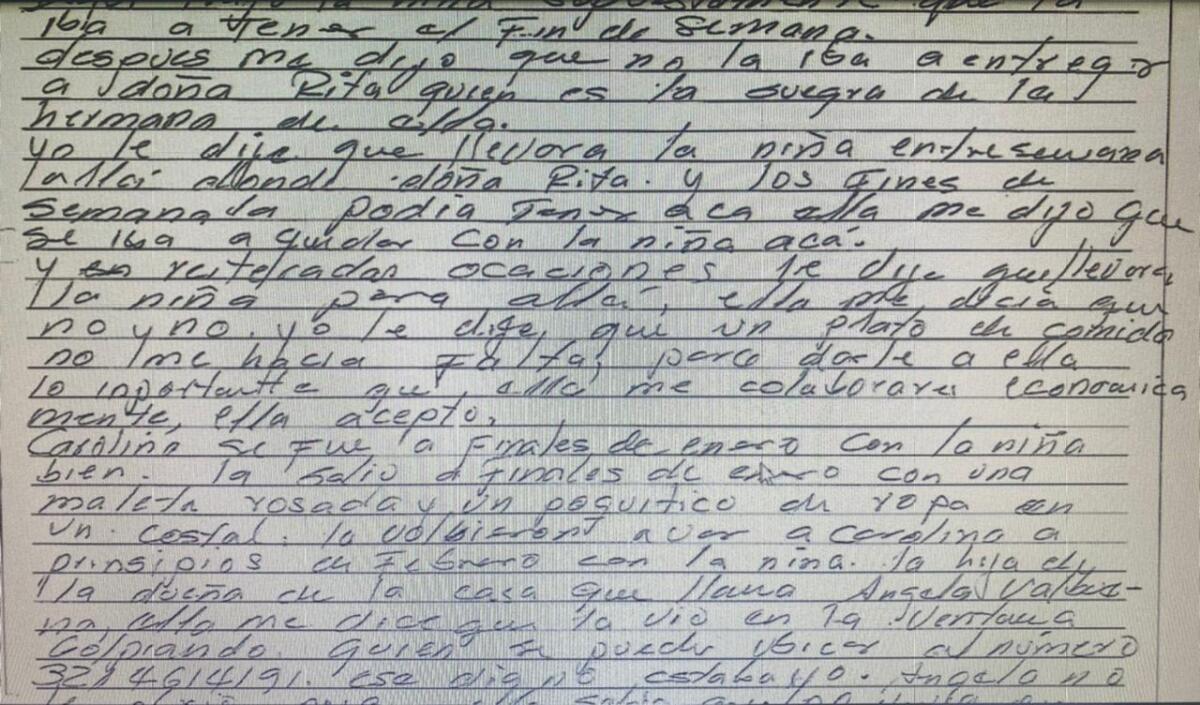 iba a tener el fin de semana.
despues me dijo que no la iba a entregar
a doña Rita quien es la suegra de la
hermana de ella.
yo le dije que llevora la niña entresemana
alla donde doña Rita. y los fines de
semana la podia Tener aca ella me dijo que
se iba a quedar con la niña acá.
y en reiteradas ocaciones le dije que llevora
la niña para alla, ella me decia que
no y no. yo le dije, que un plato de comida
no me hacia Falta, para darle a ella
lo inportante que, ella me colaborara economica
mente, ella acepto.
Carolina se fue a finales de enero con la niña
bien. la salio a finales de enero con una
maleta rosada y un poquitico de ropa en
un costal. la volbieron a ver a Carolina a
prinsipios de Febrero con la niña. la hija de
la dueña de la casa que llama Angela Valbue-
na, ella me dice que la vio en la Ventana
Golpiando. quien se puede ubicar al número
3214614191. ese dia no estaba yo. Angela no